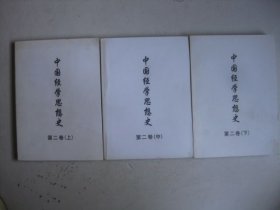 中国经学思想史
第二卷(上)
中国经学思想史
第二卷(中)
中国经学思想史
第二卷(下)